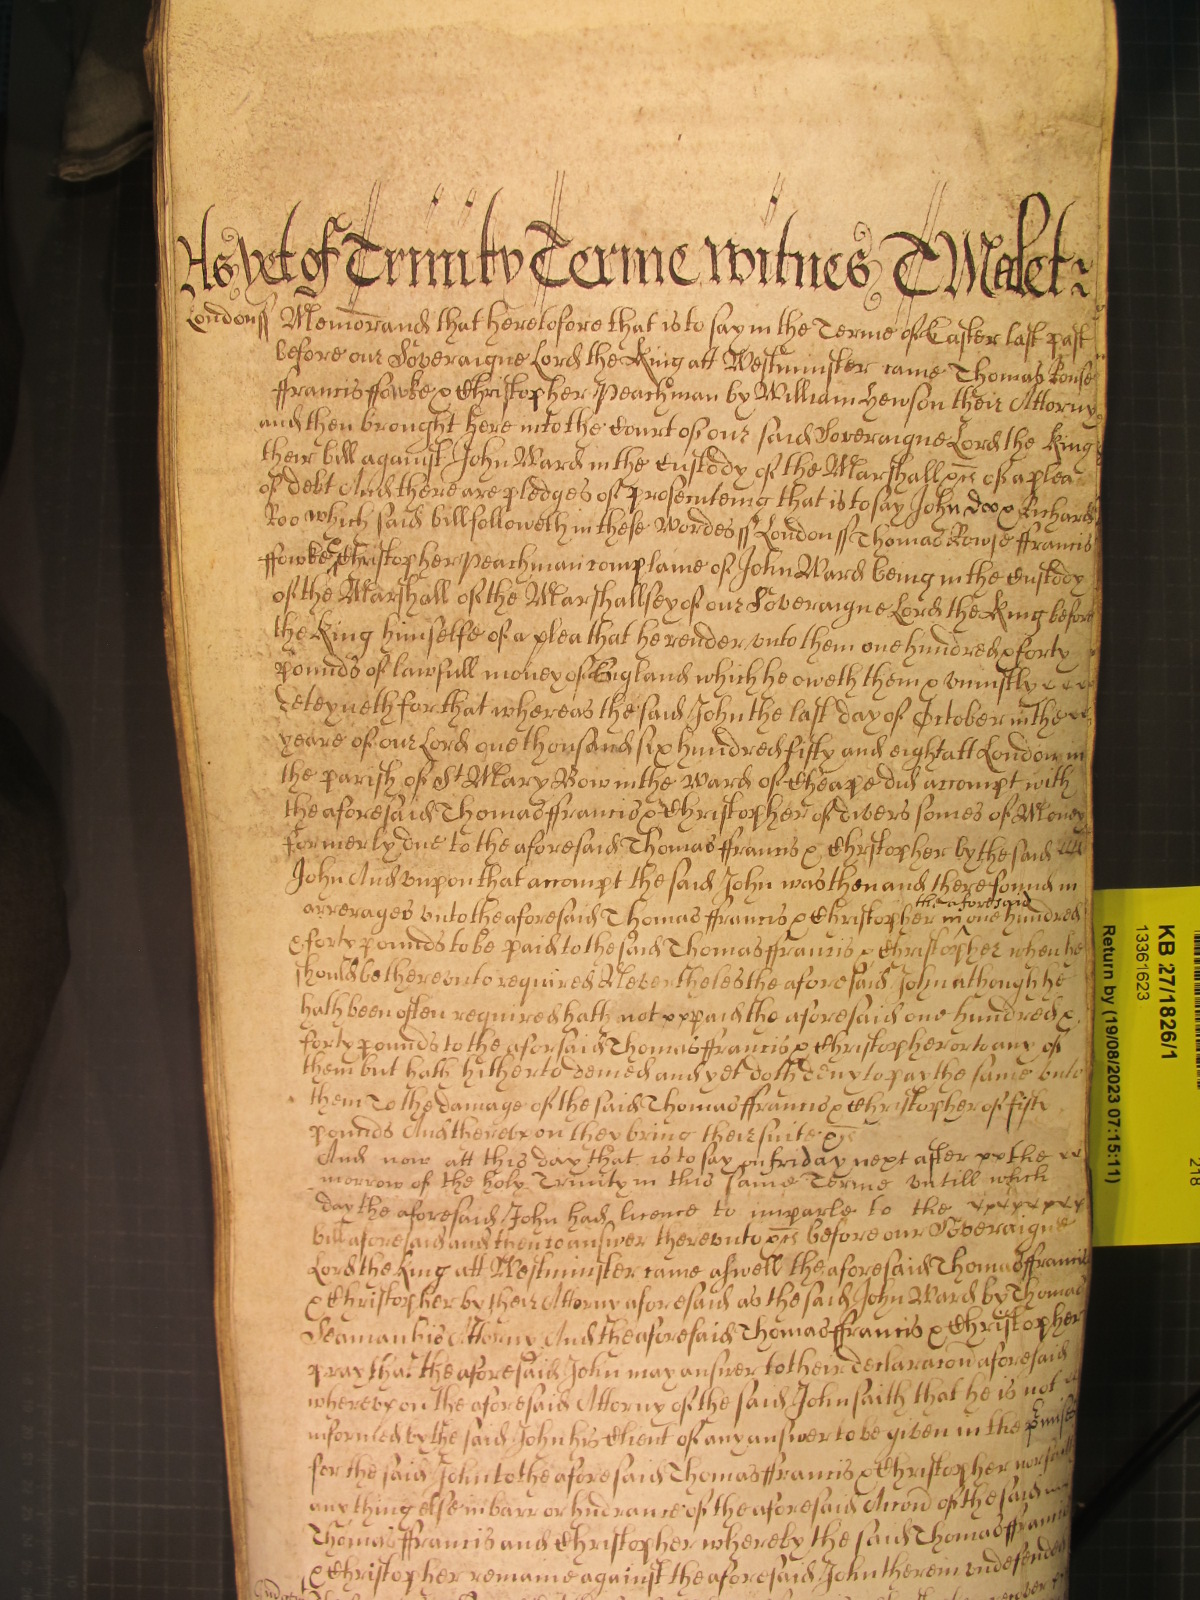 As yet of Trinity Terme Witnes T Malet
Londonss Memorand that heretofore that is to say in the Terme of Easter last past
before our Soveraigne Lord the King att Westminster came Thomas Rouse
ffrancis ffowke & Christopher Peachman by William Hewson their Attorny
and then brought here into the Court of our said Soveraigne Lord the King
their bill against John Ward in the Custody of the Marshall &c of a plea
of debt And there are pledges of prosecuteing that is to say John Doo & Richard
Roo which said bill followeth in these Wordes ss London ss Thomas Rowse ffrancis
ffowke & Christopher Peachman complaine of John Ward being in the Custody
of the Marshall of the Marshallsey of our Soveraigne Lord the King before
the King himselfe of a plea that he render unto them one hundred & forty
pounds of lawfull money of England which he oweth them & uniustly
deteyneth for that whereas the said John the last day of October in the
yeare of our Lord one thousand six hundred fifty and eight att London in
the parish of St Mary Bow in the Ward of Cheape did accompt with
the aforesaid Thomas ffrancis & Christopher of divers somes of Money
formerly due to the aforesaid Thomas ffrancis & Christopher by the said
John And uupon that accompt the said John was then and there found in
arrerages unto the aforesaid Thomas ffrancis & Christopher in the aforesaid one hundred
& forty pounds to be paid to the said Thomas ffrancis & Christopher when he
should be thereunto required Neverthelesthe aforesaid John athough he
hath been often required hath not paid the aforesaid one hundred &
forty pounds to the aforsaid Thomas ffrancis & Christopher or to any of
them but hath hitherto denied and yet doth deny to pay the same unto
them To the damage of the said Thomas ffrancis & Christopher of fifty
pounds And thereupon they bring their suite &c
And now att this day that is to say on friday next after the
morrow of the holy Trinity in this same Terme untill which
day the aforesaid John had licence to imparle to the
bill aforesaid and then to answer thereunto &c before our Soveraigne
Lord the King att Westminster came aswell the aforesaid Thomas ffrancis
& Christopher by their Attorny aforesaid as the said John Ward by Thomas
Seaman his Attorny And the aforesaid Thomas ffrancis & Christopher
pray that the aforesaid John may answer to their declaracon aforesaid
whereupon the aforesaid Attorny of the said John saith that he is not
informed by the said John his Client of any answer to be given in the pmises
for the said John to the aforesaid Thomas ffrancis & Christopher nor saith
any thing else in barr or hindrance of the aforesaid Accon of the said
Thomas ffrancis and Christopher whereby the said Thomas ffrancis
& Christopher remaine against the aforesaid John therein undefended
KB 27/1826/1
13361623
Return by (19/08/2023 07:15:11)
218